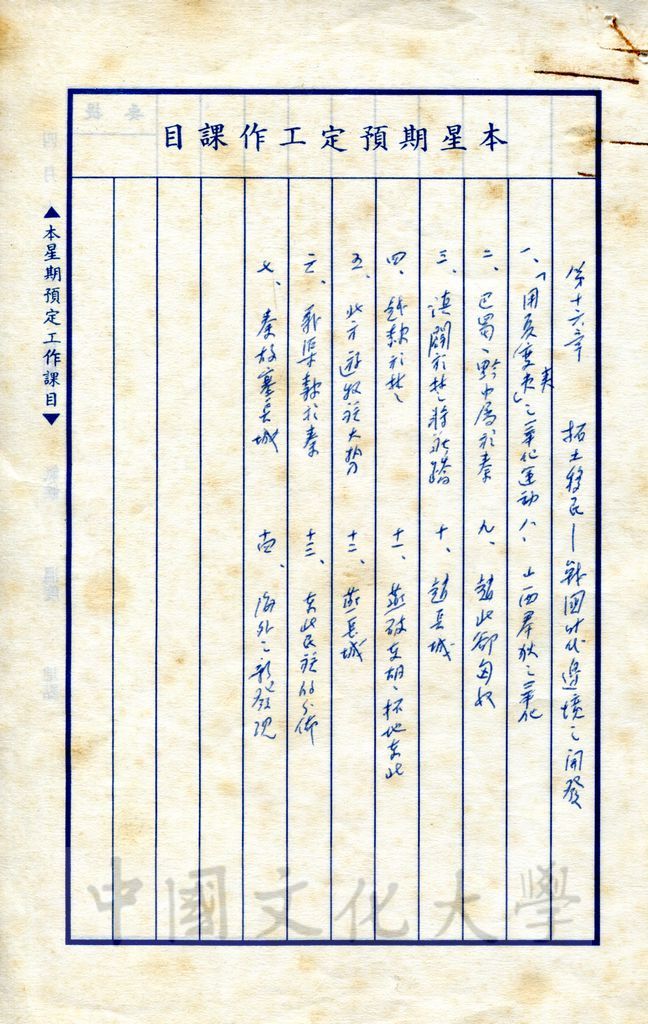 本星期預定工作課目
第十六章 拓土移民—戰國时代邊境之開發
一、「用夏變夷」之華化運動 八、山西羣狄之華化
二、巴蜀、黔中屬於秦 九、趙北卻匈奴
三、滇闢於楚將莊蹻 十、趙長城
四、越隸於楚 十一、燕破東胡、拓地東北
五、北方遊牧族大势 十二、燕長城
六、義渠隸於秦 十三、東北民族的分佈
七、秦故塞長城 十四、海外之新發現
▲本星期預定工作課目▼
中國文化大學